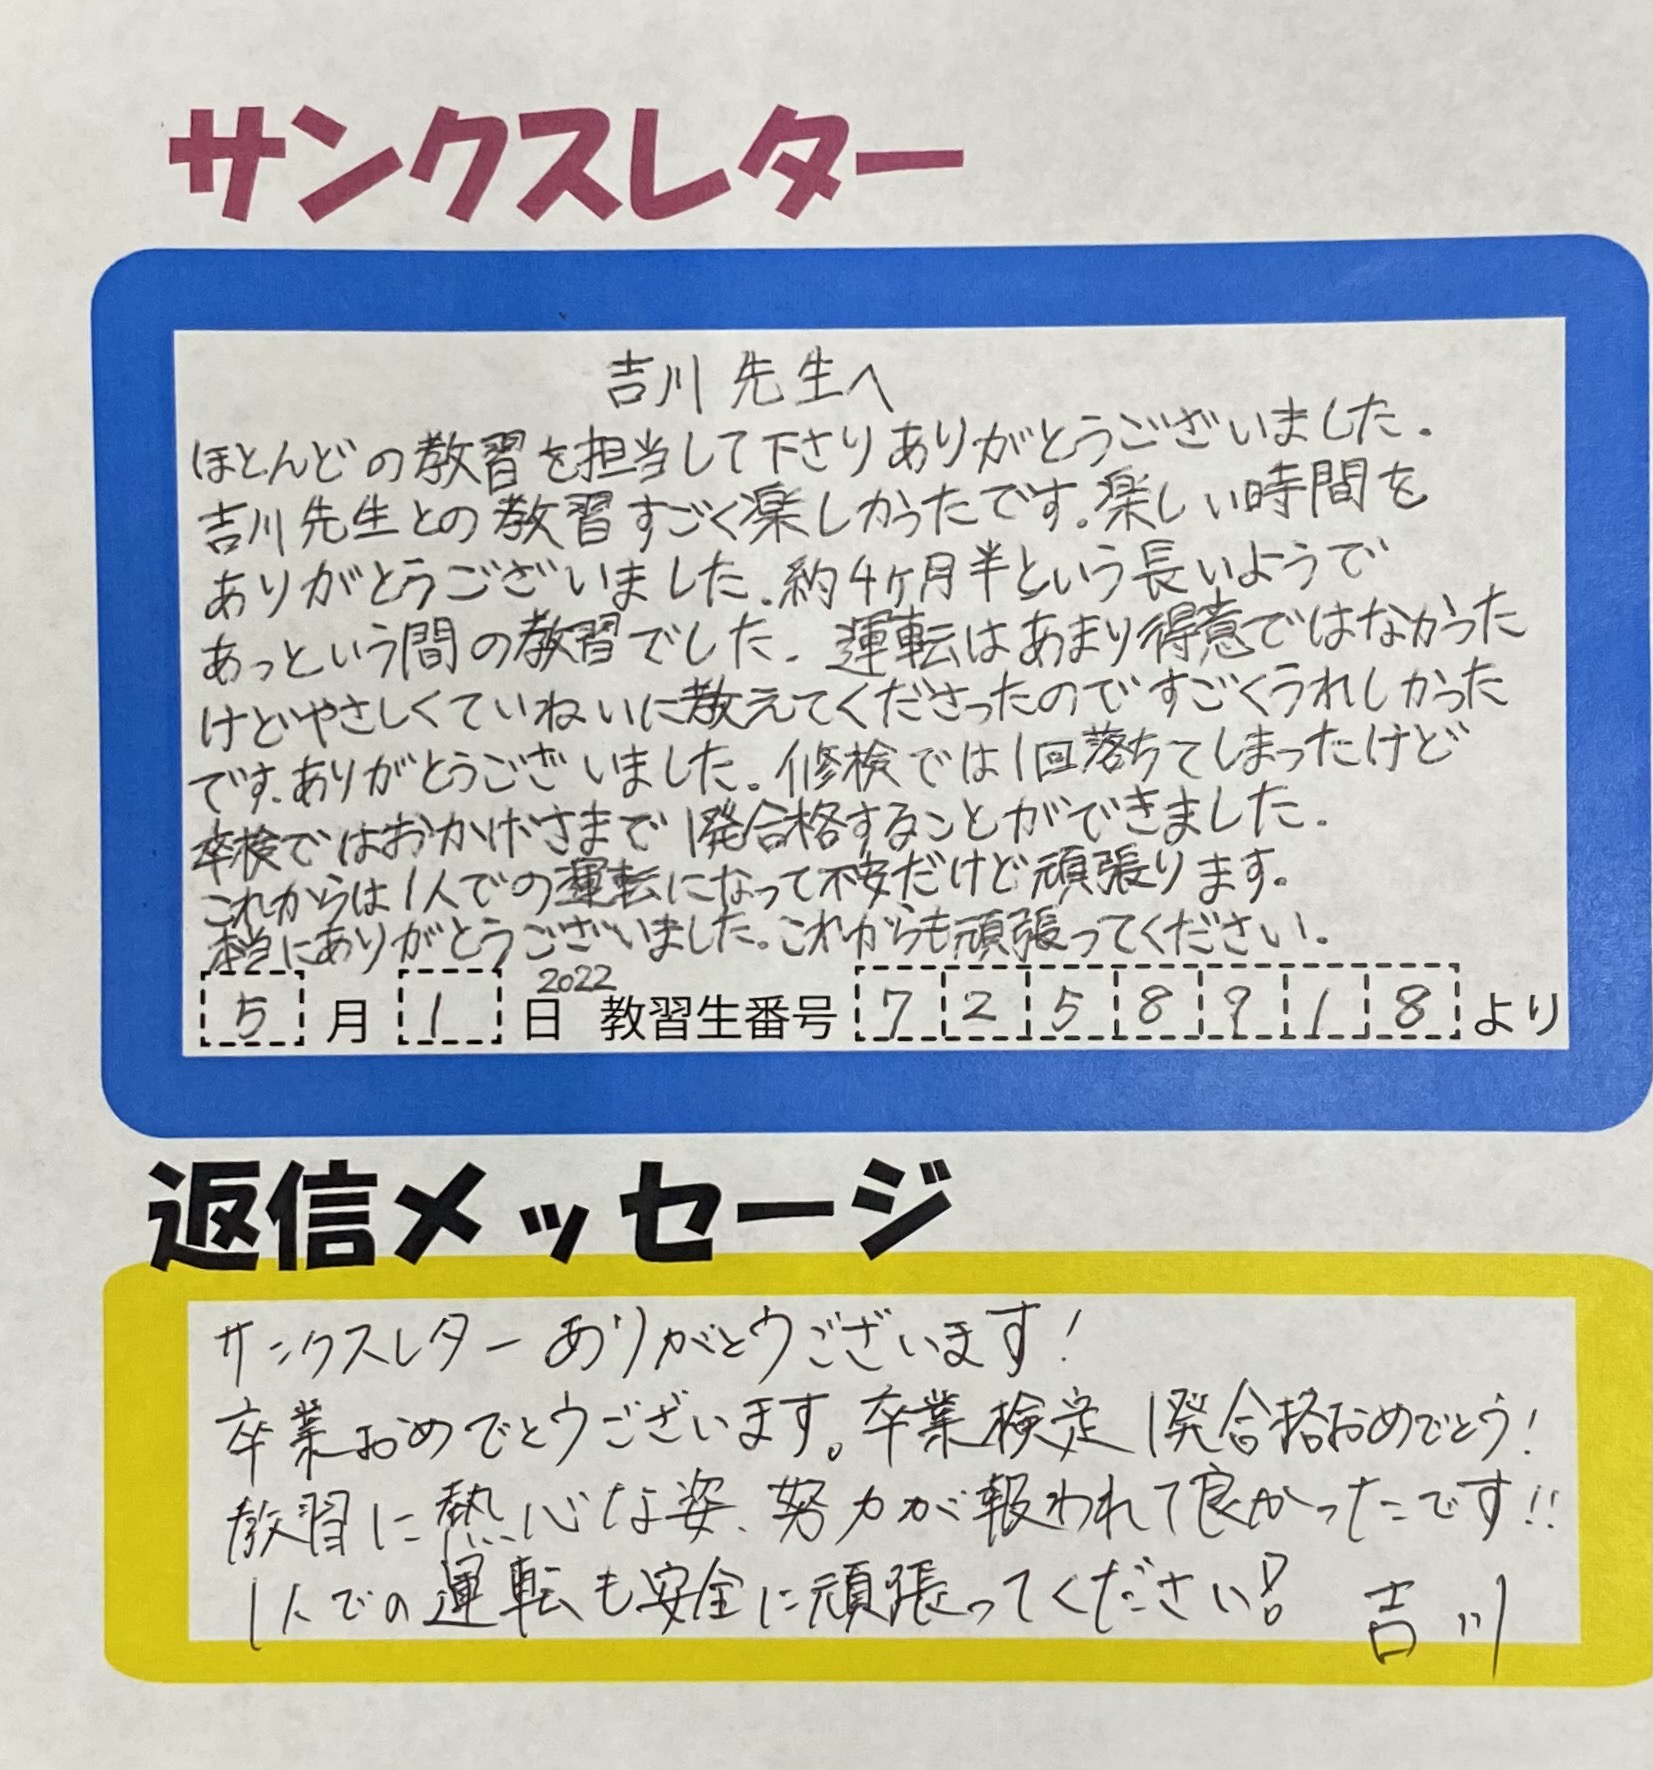 サンクスレター
吉川先生へ
ほとんどの教習を担当して下さりありがとうございました。
吉川先生との教習すごく楽しかったです。楽しい時間を
ありがとうございました。約4ヶ月半という長いようで
あっという間の教習でした。運転はあまり得意ではなかった
けどやさしくていねいに教えてくださったのですごくうれしかった
です。ありがとうございました。修検では1回落ちてしまったけど
卒検ではおかげさまで1発合格することができました。
これからは1人での運転になって不安だけど頑張ります。
本当にありがとうございました。これからも頑張ってください。
5月1日 2022 教習生番号 7258918より
返信メッセージ
サンクスレターありがとうございます!
卒業おめでとうございます。卒業検定1発合格おめでとう!
教習に熱心な姿、努力が報われて良かったです!!
1人での運転も安全に頑張ってください! 吉川